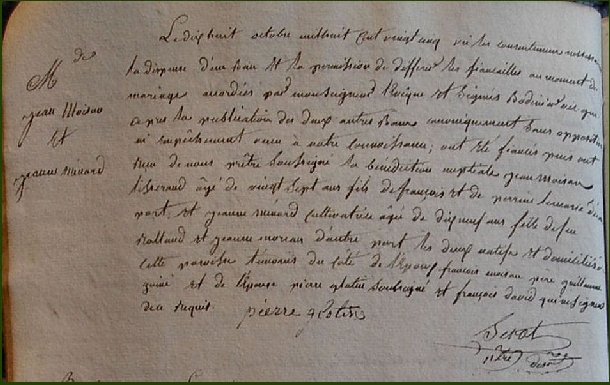 M de
jean Moisan
Et
jeanne Minard
Le dix huit octobre mil huit cent vingt cinq vu les
la dispense d'un ban et la permission de differer les fiancailles au moment du
mariage accordées par monseigneur l'eveque et signées vu que
apres la publication des deux autres bans canoniquement sans opposition
ni empêchement venu à notre connoissance; ont été fiancés puis ont
recu de nous prêtre soussigné la bénédiction nuptiale jean Moisan
tisserand âgé de vingt sept ans fils de françois et de perrine d'une
part, et jeanne minard cultivatrice agée de dix neuf ans fille de feu
Rolland et jeanne moreau d'autre part les deux natifs et domiciliés de
cette paroisse temoins du coté de l'époux françois moisan père guillaume
et de l'épouse pierre soussigné et françois david qui ne signe
de ce requis. pierre
Serot
prêtre desst